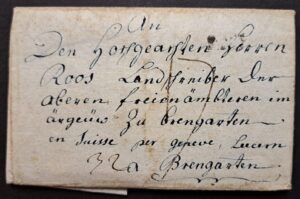 An
Den Hochgeachten Herren
Roos Landschreiber Der
oberen freienämbteren im
ärgeüw Zu Bremgarten
en Suisse per geneve, Lucern
Bremgarten